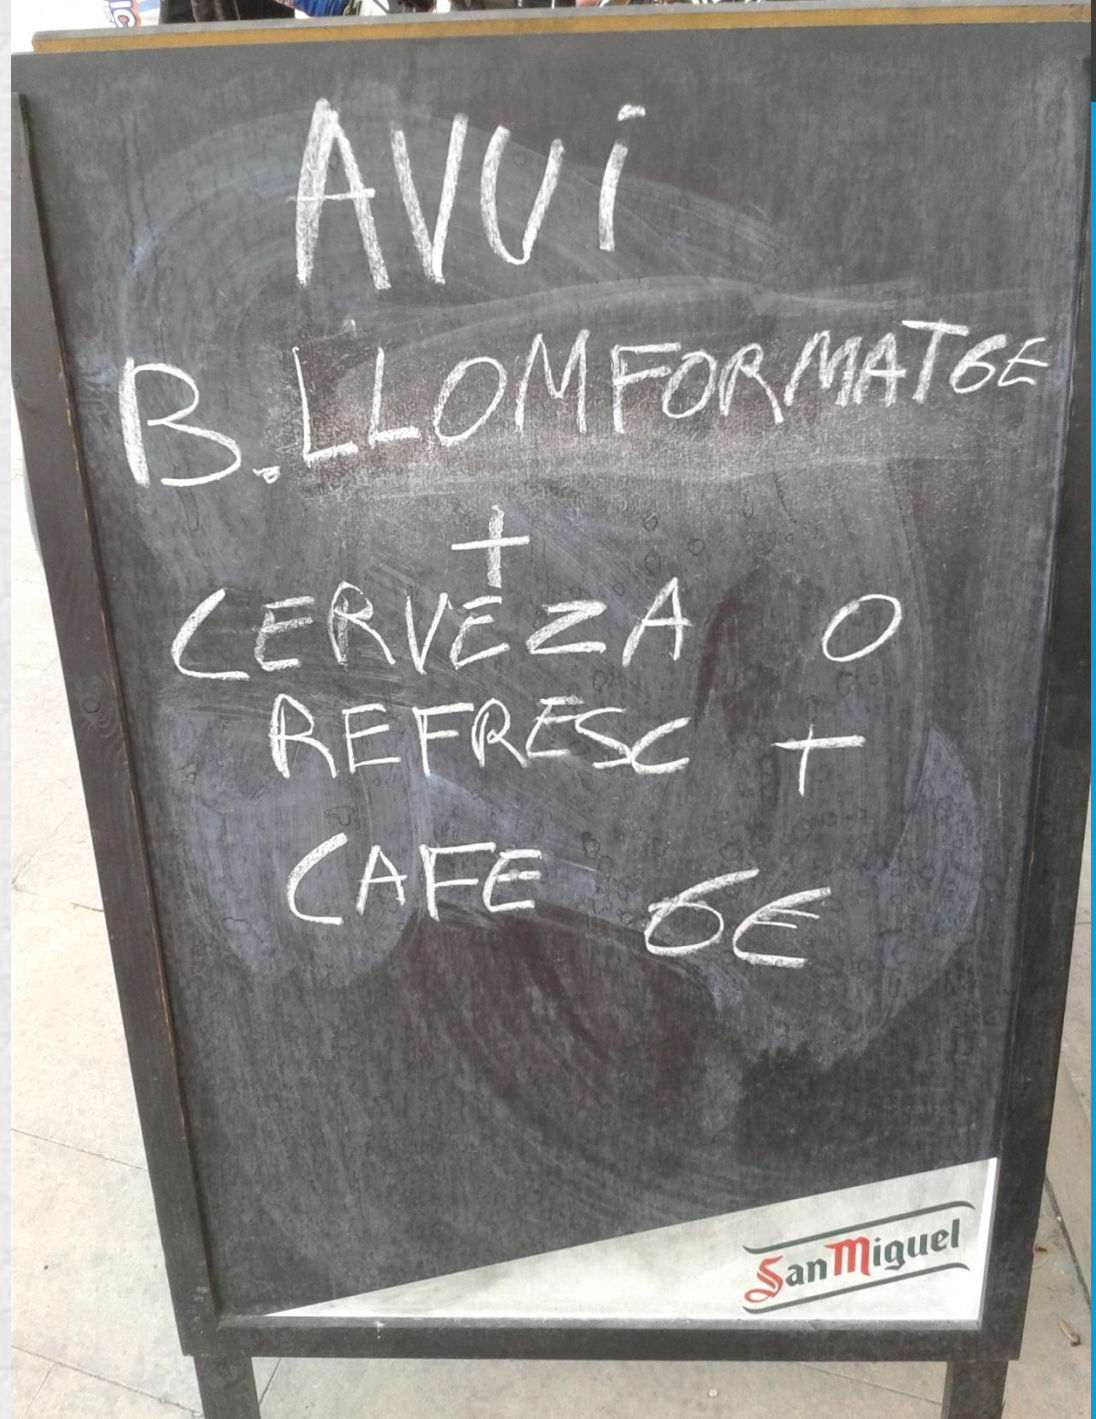 AVUi
B. LLOM FORMATGE
+
CERVEZA O
REFRESC +
CAFE 6€
San Miguel